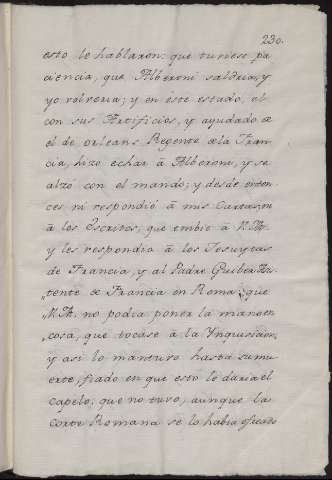 230.
esto le hablaron: que tuviese pa
ciencia, que Alberoni saldria, y
yo volveria; y en este estado, el
con sus Artificios, y ayudado de
el de orleans Regente de la Fran
cia, hizo echar à Alberoni, y se
alzó con el mando; y desde enton
ces ni respondió à mis Cartas ni
à los Escritos, que embie à V.M.
y les respondio à los Jesuytas
de Francia, y al Padre Guiber Asis
„tente de Francia en Roma, que
„V.M. no podia poner la mano en
cosa, que tocàse à la Ynquisicion,
y asi lo mantuvo hasta su mu
erte, fiado en que esto le daria el
Capelo: que no tuvo, aunque la
Corte Romana se lo habia ofrecido